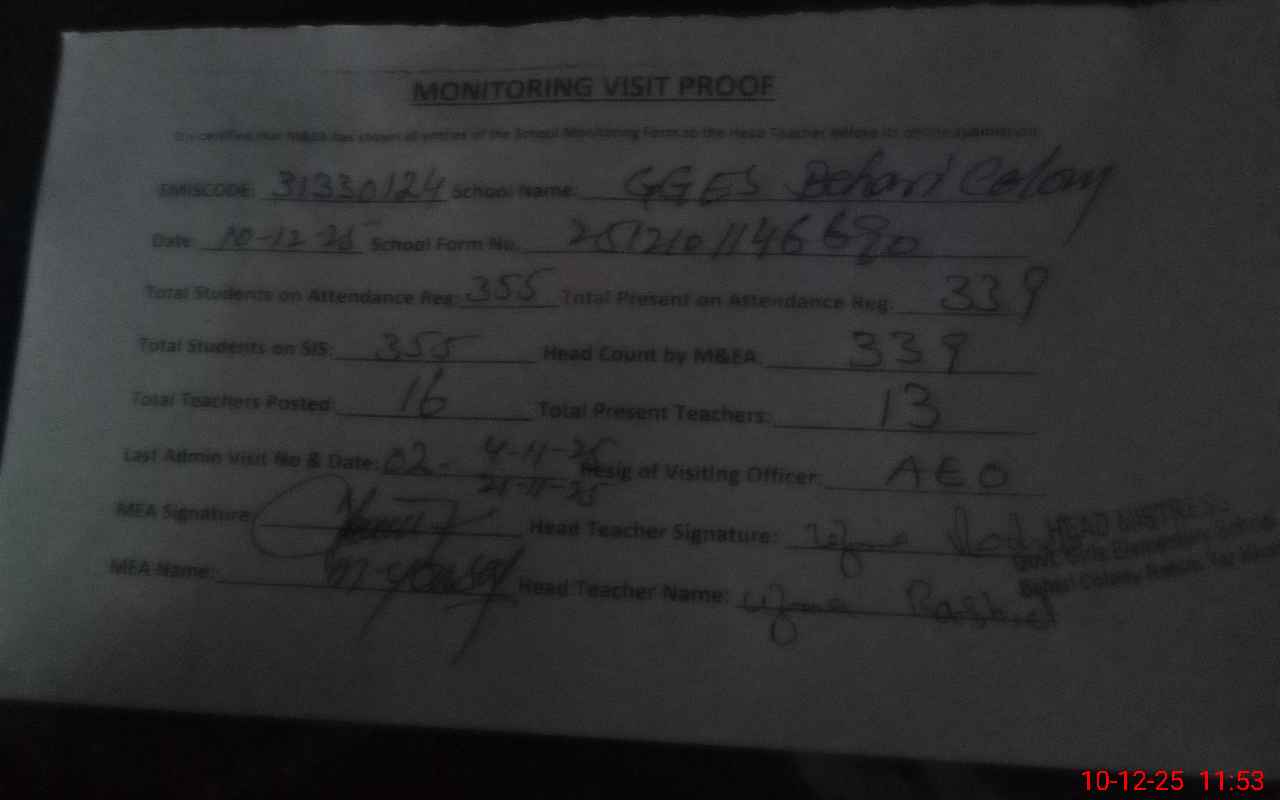 MONITORING VISIT PROOF
It is certified that M&EA has shown all entries of the School Monitoring Form to the Head Teacher before its online submission.
EMISCODE: 31330124 School Name: GGES Behari Colony
Date: 10-12-25 School Form No. 2512101146690
Total Students on Attendance Reg: 355 Total Present on Attendance Reg: 339
Total Students on SIS: 355 Head Count by M&EA: 339
Total Teachers Posted: 16 Total Present Teachers: 13
Last Admin Visit No & Date: 02- 4-11-25 Desig of Visiting Officer: AEO
21-11-25
MEA Signature: Head Teacher Signature: Uzma
HEAD MISTRESS
Govt. Girls Elementary School
Behari Colony Rahim Yar Khan
MEA Name: M-Yousaf Head Teacher Name: Uzma Rashid
10-12-25 11:53